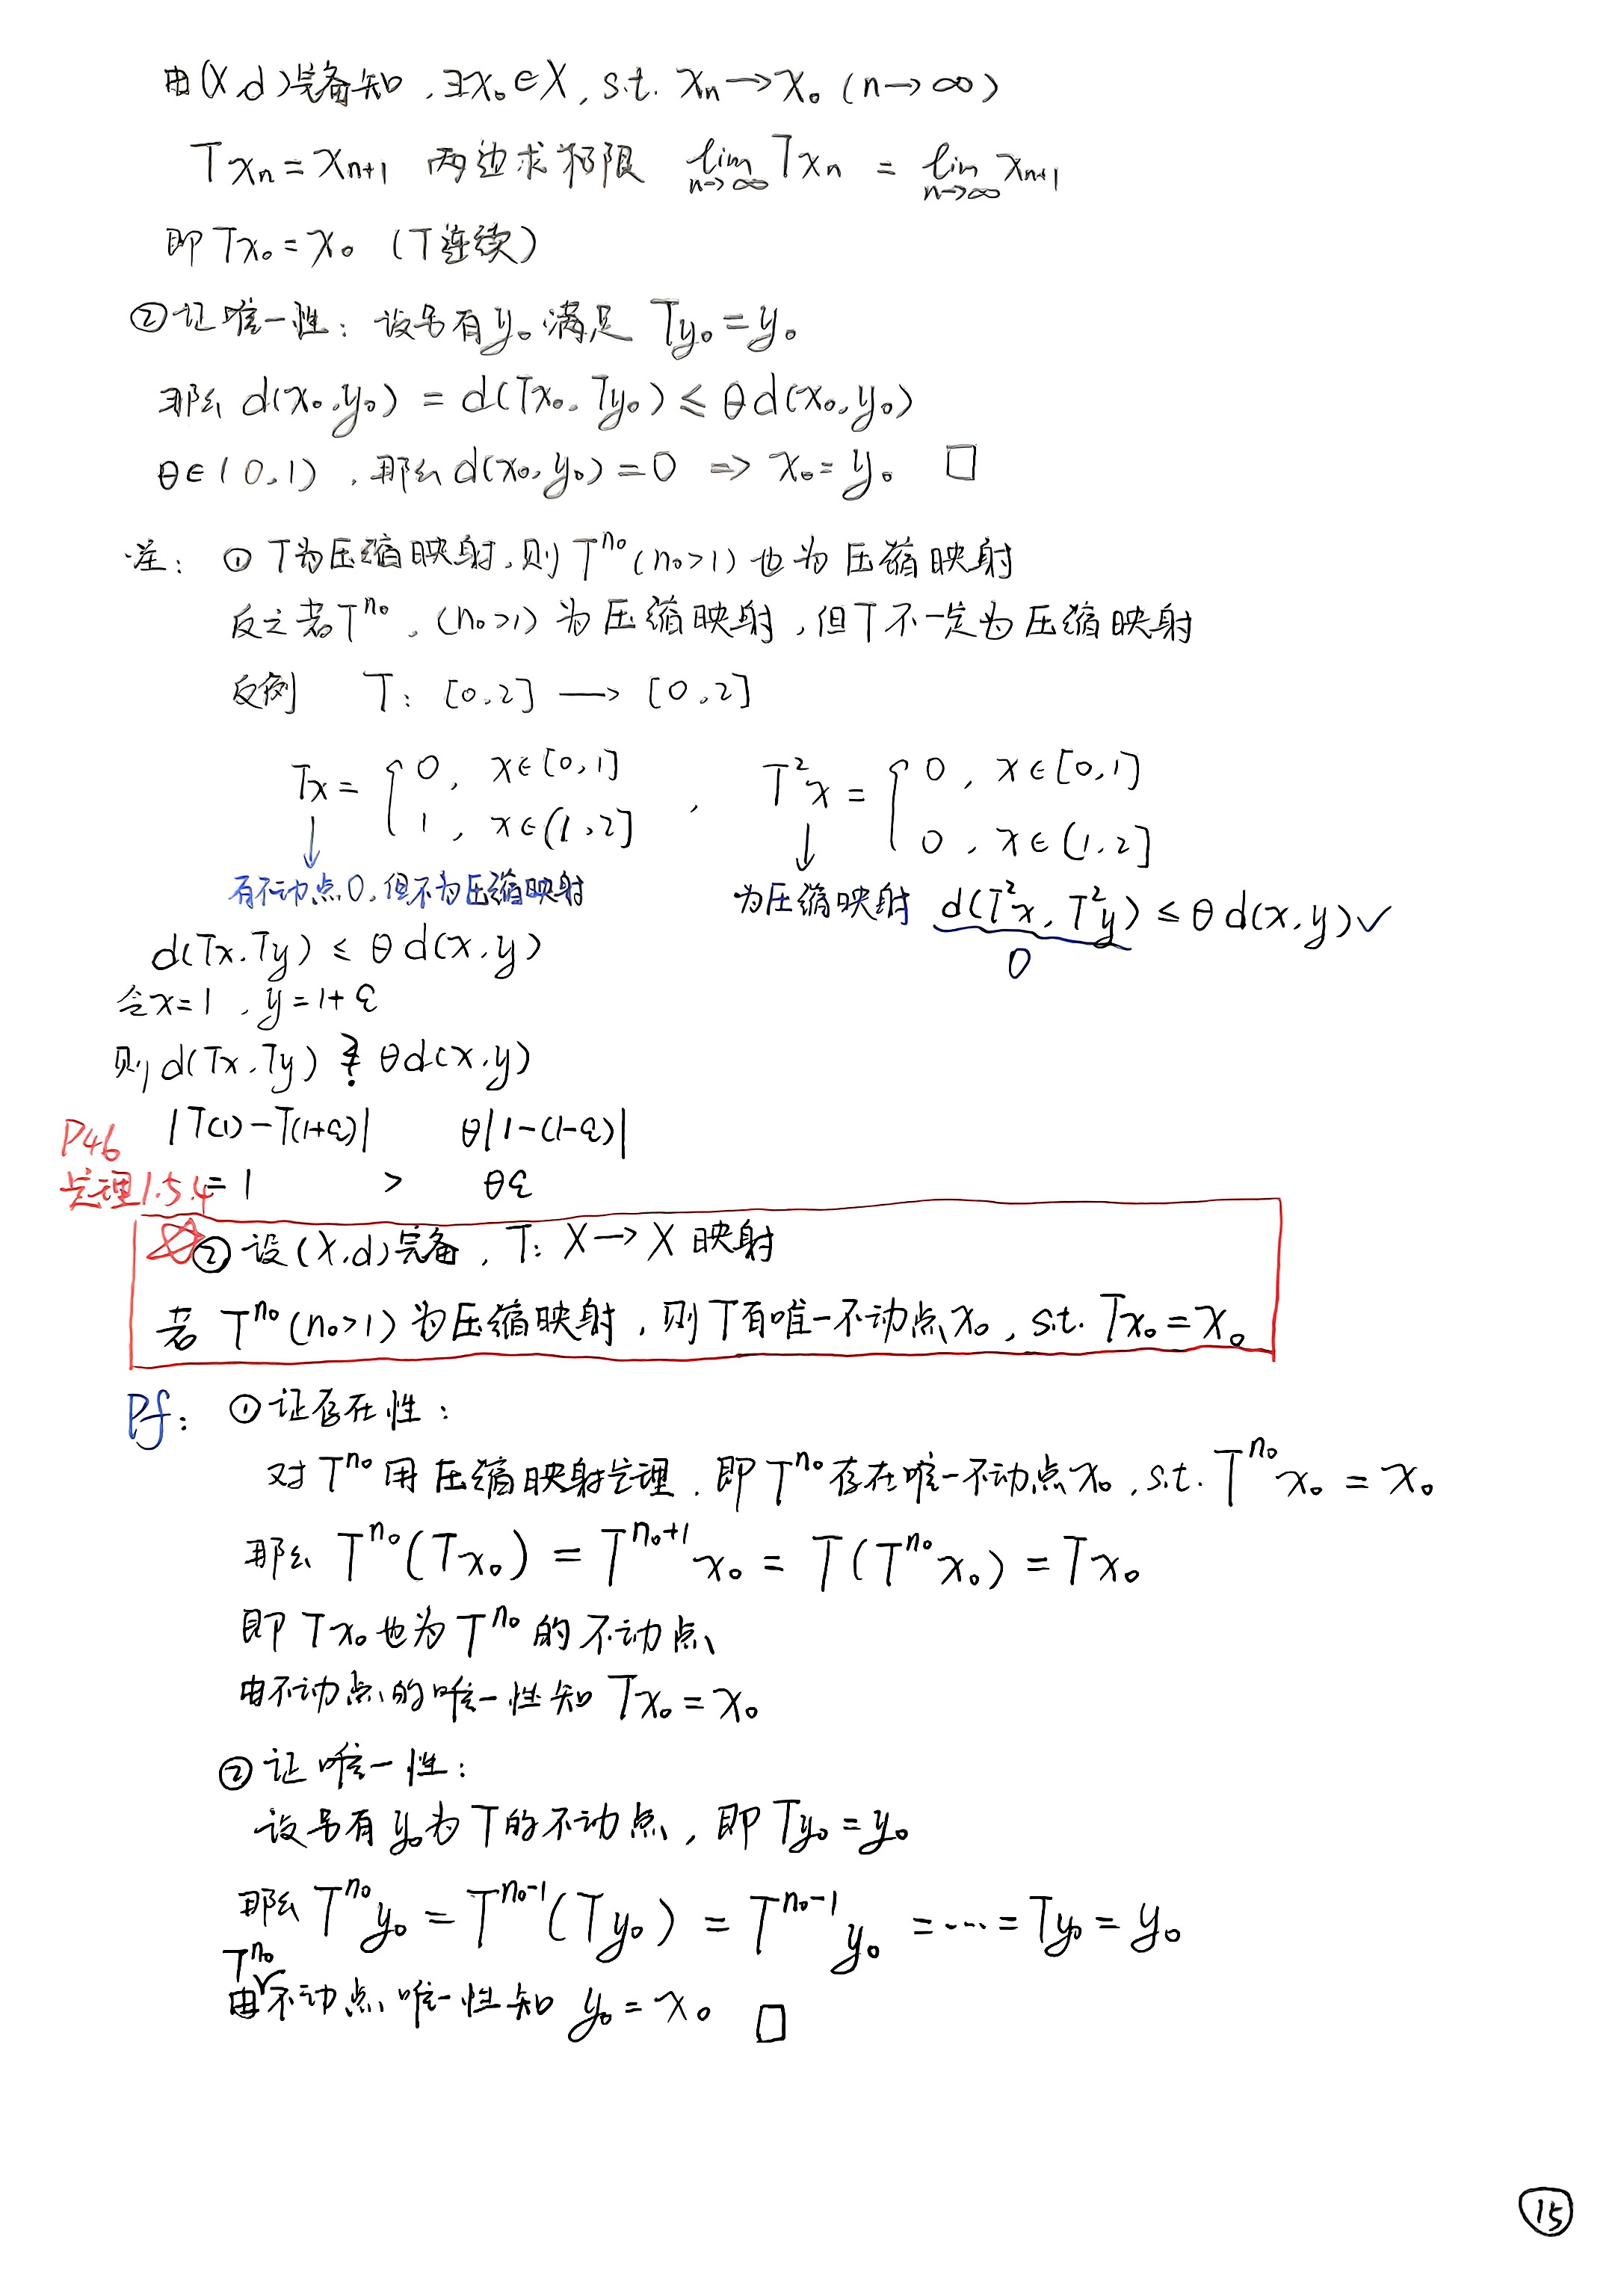 由(X,d)完备知,∃x₀∈X, s.t. xₙ→x₀ (n→∞)
Txₙ=xₙ₊₁ 两边求极限 lim_{n→∞} Txₙ = lim_{n→∞} xₙ₊₁
即 Tx₀=x₀ (T连续)
②证唯一性: 设另有y₀满足 Ty₀=y₀
那么 d(x₀,y₀) = d(Tx₀,Ty₀) ≤ θd(x₀,y₀)
θ∈(0,1),那么d(x₀,y₀)=0 ⇒ x₀=y₀ □
注: ① T为压缩映射,则 T^{n₀}(n₀>1)也为压缩映射
反之若T^{n₀},(n₀>1)为压缩映射,但T不一定为压缩映射
反例 T: [0,2] → [0,2]
Tx = { 0, x∈[0,1] ; 1, x∈(1,2] , T²x = { 0, x∈[0,1] ; 0, x∈(1,2]
↓ ↓
有不动点0,但不为压缩映射 为压缩映射 d(T²x, T²y) ≤ θd(x,y)✓
0
d(Tx,Ty) ≤ θd(x,y)
令x=1, y=1+ε
则d(Tx,Ty) θd(x,y)
|T(1)-T(1+ε)| θ|1-(1-ε)|
P46
定理1.5.4 =1 > θε
☆②设(X,d)完备, T: X→X 映射
若 T^{n₀}(n₀>1)为压缩映射,则T有唯一不动点x₀, s.t. Tx₀=x₀
Pf: ①证存在性:
对T^{n₀}用压缩映射定理,即T^{n₀}存在唯一不动点x₀, s.t. T^{n₀}x₀ = x₀
那么 T^{n₀}(Tx₀) = T^{n₀+1}x₀ = T(T^{n₀}x₀) = Tx₀
即Tx₀也为T^{n₀}的不动点
由不动点的唯一性知 Tx₀=x₀
②证唯一性:
设另有y₀为T的不动点,即Ty₀=y₀
那么 T^{n₀}y₀ = T^{n₀-1}(Ty₀) = T^{n₀-1}y₀ =⋯= Ty₀ = y₀
由T^{n₀}不动点唯一性知 y₀=x₀ □
⑮